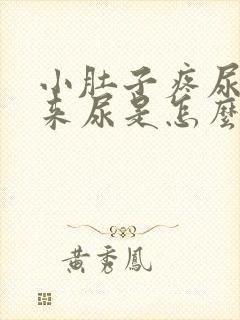 小肚子疼尿
来尿是怎麼
黄秀鳳